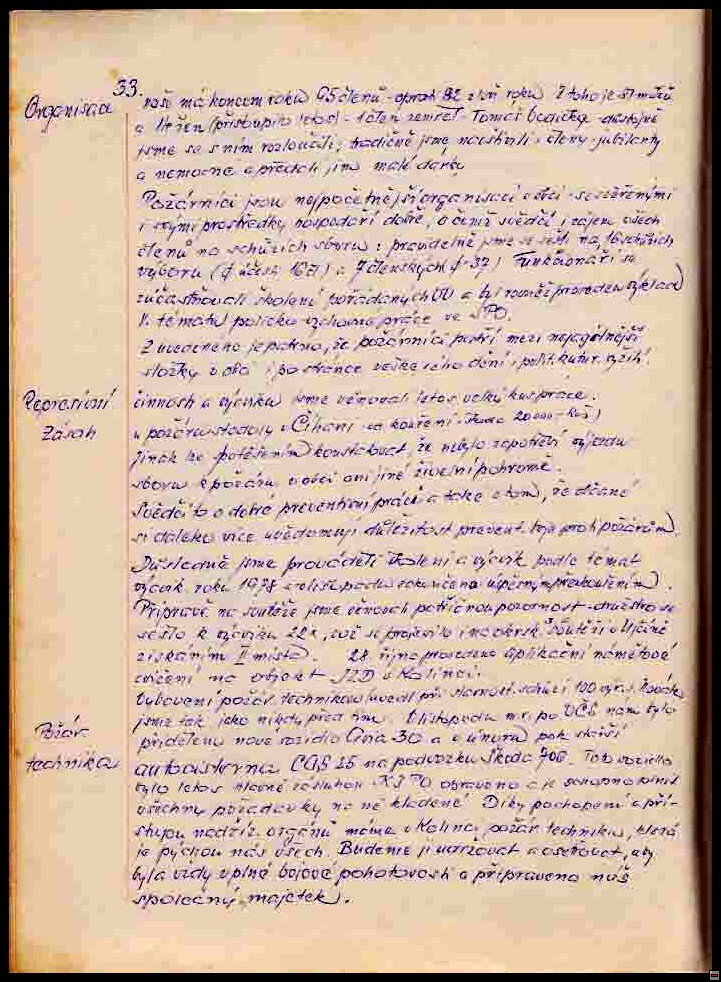 33.
Organisace
naše má koncem roku 95 členů - oproti 82 z loň. roku. Z toho je 81 mužů
a 14 žen (přistoupilo letos) - 1 člen zemřel - Tomáš - důstojně
jsme se s ním rozloučili, tradičně jsme navštívili členy - jubilanty
a nemocné a předali jim malé dárky
Požárníci jsou nejpočetnější organisací v obci - se svěřenými
i svými prostředky hospodaří dobře, o čemž svědčí i zájem všech
členů na schůzích sboru: pravidelně jsme se sešli na 16 schůzích
výboru a 7 členských Funkcionáři se
zúčastňovali školení pořádaných OV a byl rovněž proveden výklad
V. tématu politicko výchovné práce ve SPO.
Z uvedeného je patrno, že požárníci patří mezi nejagilnější
složky v obci i po stránce veškerého dění i polit. kultur. vyžití.
Represivní
zásah
činnosti a výcviku jsme věnovali letos velký kus práce.
u požáru stodoly v Číhani od kouření škoda 20 000 - Kčs)
Jinak lze potěšením konstatovat, že nebylo zapotřebí výjezdu
sboru k požáru v obci ani jiné živelní pohromě.
Svědčí to o dobré preventivní práci a také o tom, že občané
si daleko více uvědomují důležitost prevent. boje proti požárům.
Důsledně jsme prováděli školení a výcvik podle témat
výcvik. roku 1978 zakončeno úspěšným přezkoušením.
Přípravě na soutěže jsme věnovali patřičnou pozornost - družstvo se
sešlo k výcviku 22x, což se projevilo i na okrsk. soutěži v Újčíně
získáním II místa. 28 října provedeno aplikační námětové
cvičení na objekt JZD v Kolinci.
Požár.
technika
Vybavení požár. technikou uvedl při slavnost. schůzi 100 výr.
jsme tak jako nikdy před tím. V listopadu m. r. po nám bylo
přiděleno nové vozidlo Avia 30 a v únoru pak starší
autocisterna CAS 25 na podvozku Škoda 706. Toto vozidlo
bylo letos hlavně zásluhou opraveno a je schopno plnit
všechny požadavky na ně kladené. Díky pochopení a pří-
stupu nadříz. orgánů máme v Kolinci požár. techniku, která
je pýchou nás všech. Budeme ji udržovat a ošetřovat, aby
byla vždy v plné bojové pohotovosti a připravena náš
společný majetek.